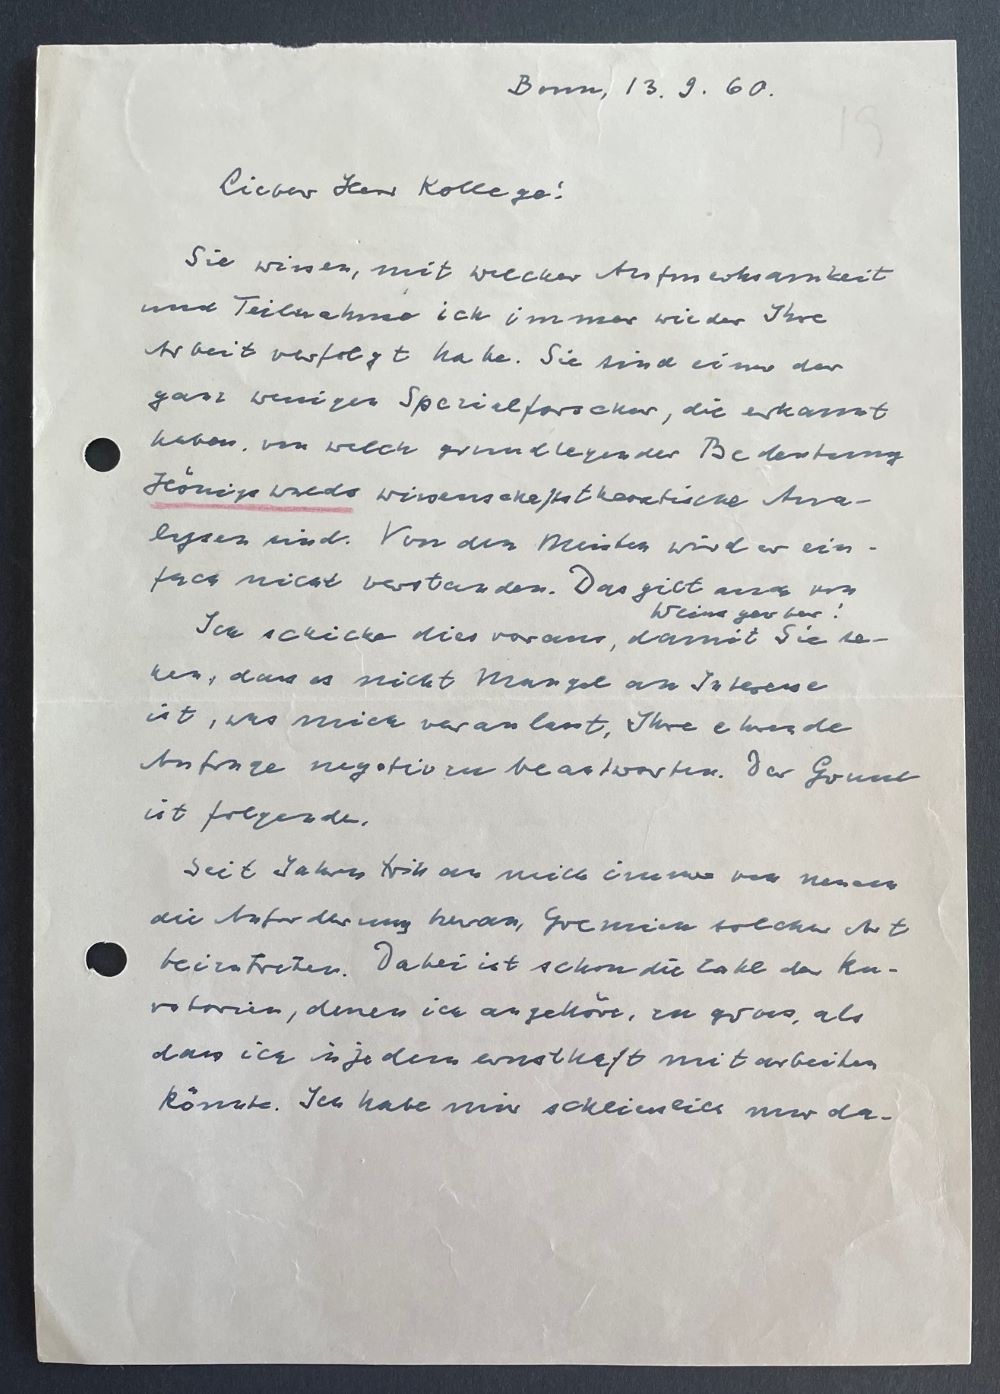 Bonn, 13. 9. 60.
Lieber Herr Kollege!
Sie wissen, mit welcher Aufmerksamkeit
und Teilnahme ich immer wieder Ihre
Arbeit verfolgt habe. Sie sind einer der
ganz wenigen Spezialforscher, die erkannt
haben, von welch grundlegender Bedeutung
Hönigswalds wissenschaftstheoretische Ana-
lysen sind. Von den Meisten wird er ein-
fach nicht verstanden. Das gilt auch von
Weinsgerber!
Ich schicke dies voraus, damit Sie se-
hen, dass es nicht Mangel an Interesse
ist, was mich veranlasst, Ihre ehrende
Anfrage negativ zu beantworten. Der Grund
ist folgender.
Seit Jahren tritt an mich immer von neuem
die Anforderung heran, Gremien solcher Art
beizutreten. Dabei ist schon die Zahl der Ku-
ratorien, denen ich angehöre, zu gross, als
dass ich in jedem ernsthaft mitarbeiten
könnte. Ich habe mir schliesslich nur da-